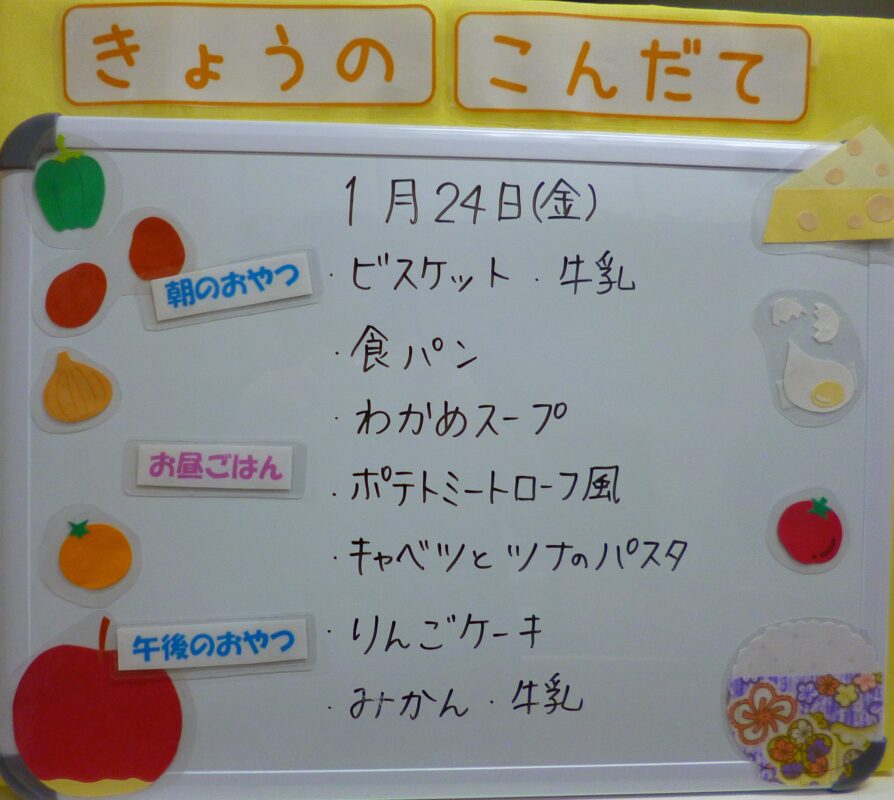 きょうの こんだて
1月24日(金)
朝のおやつ ・ビスケット・牛乳
・食パン
・わかめスープ
お昼ごはん ・ポテトミートローフ風
・キャベツとツナのパスタ
午後のおやつ ・りんごケーキ
・みかん・牛乳